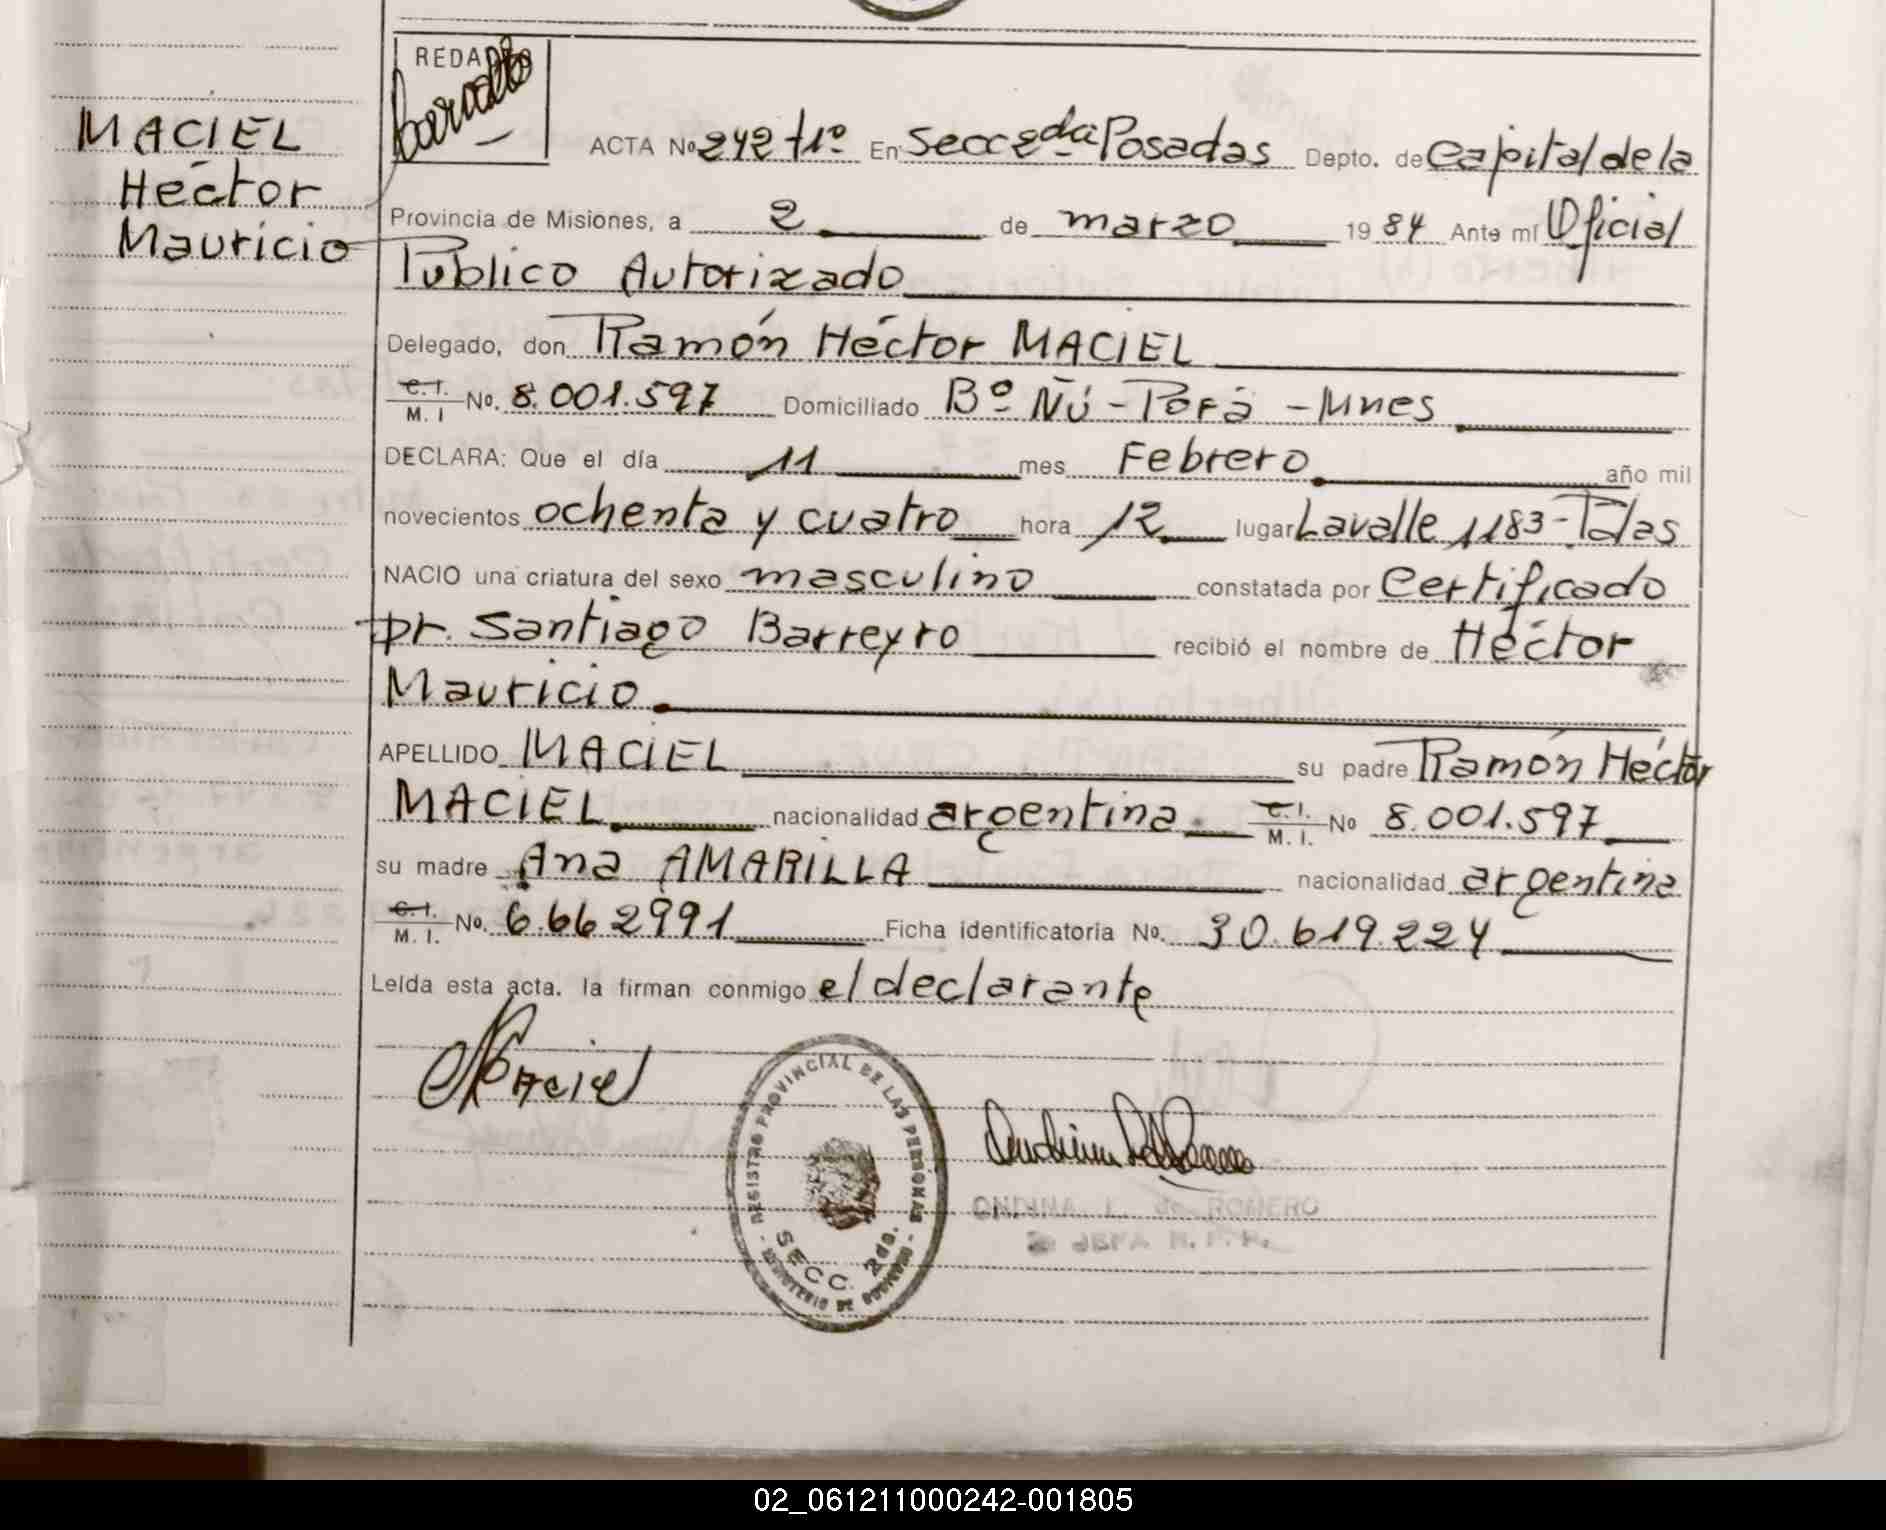 MACIEL
Héctor
Mauricio
REDA
ACTA Nº 242 tº1º En Secc 2da Posadas Depto. de Capital de la
Provincia de Misiones, a 2 de marzo 1984 Ante mí Oficial
Público Autorizado
Delegado, don Ramón Héctor MACIEL
C.I. M.I No. 8.001.597 Domiciliado Bº Ñú-Porá - Mnes
DECLARA: Que el día 11 mes Febrero año mil
novecientos ochenta y cuatro hora 12 lugar Lavalle 1183-Pdas
NACIO una criatura del sexo masculino constatada por Certificado
Dr. Santiago Barreyro recibió el nombre de Héctor
Mauricio
APELLIDO MACIEL su padre Ramón Héctor
MACIEL nacionalidad argentina. C.I. M.I. No 8.001.597
su madre Ana AMARILLA nacionalidad argentina
C.I. M.I. No. 6.662991 Ficha identificatoria No. 30.619.224
Leída esta acta. la firman conmigo el declarante
Maciel
REGISTRO PROVINCIAL DE LAS PERSONAS
SECC. 2da.
MINISTERIO DE GOBIERNO
ONDINA L. de ROMERO
JEFA R. P. P.
02_061211000242-001805